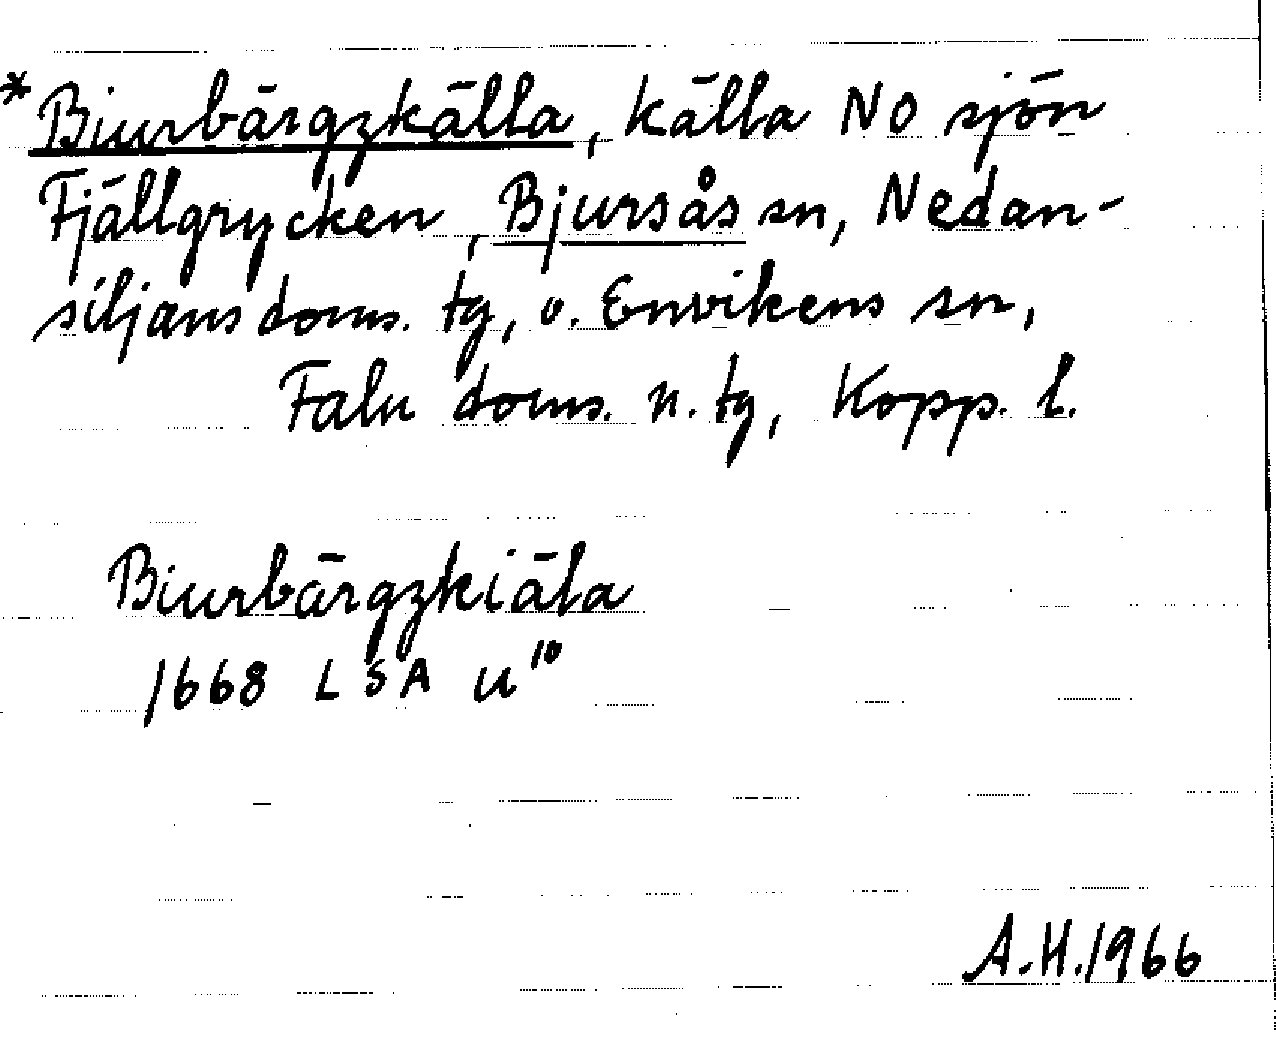 *Biurbärgzkälla, källa NO sjön
Fjällgrycken, Bjursås sn, Nedan-
siljans doms. tg, o. Envikens sn,
Falu doms. n. tg, Kopp. l.
Biurbärgzkiäla
1668 LSA u¹⁰
A.H.1966